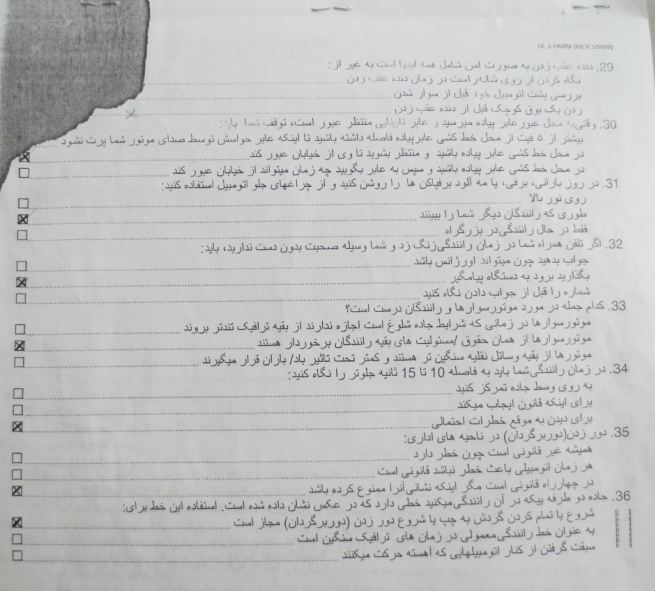 DL 5 FARSI (REV. 5/2007)
29. دنده عقب زدن به صورت امن شامل همه اینها است به غیر از:
نگاه کردن از روی شانه راست در زمان دنده عقب زدن
بررسی پشت اتوموبیل خود قبل از سوار شدن
زدن یک بوق کوچک قبل از دنده عقب زدن
30. وقتیکه به محل عبور عابر پیاده میرسید و عابر نابینایی منتظر عبور است، توقف شما باید:
بیشتر از ۵ فیت از محل خط کشی عابرپیاده فاصله داشته باشید تا اینکه عابر حواسش توسط صدای موتور شما پرت نشود
در محل خط کشی عابر پیاده باشد و منتظر بشوید تا وی از خیابان عبور کند
در محل خط کشی عابر پیاده باشید و سپس به عابر بگویید چه زمان میتواند از خیابان عبور کند
31. در روز بارانی، برفی، یا مه آلود برف پاکن ها را روشن کنید و از چراغهای جلو اتومبیل استفاده کنید:
روی نور بالا
بطوری که رانندگان دیگر شما را ببینند
فقط در حال رانندگی در بزرگراه
32. اگر تلفن همراه شما در زمان رانندگی زنگ زد و شما وسیله صحبت بدون دست ندارید، باید:
جواب بدهید چون میتواند اورژانسی باشد
بگذارید برود به دستگاه پیغامگیر
شماره را قبل از جواب دادن نگاه کنید
33. کدام جمله در مورد موتورسوارها و رانندگان درست است؟
موتورسوارها در زمانی که شرایط جاده شلوغ است اجازه ندارند از بقیه ترافیک تندتر بروند
موتورسوارها از همان حقوق /مسئولیت های بقیه رانندگان برخوردار هستند
موتورها از بقیه وسائل نقلیه سنگین تر هستند و کمتر تحت تاثیر باد/ باران قرار میگیرند
34. در زمان رانندگی شما باید به فاصله 10 تا 15 ثانیه جلوتر را نگاه کنید:
به روی وسط جاده تمرکز کنید
برای اینکه قانون ایجاب میکند
برای دیدن به موقع خطر احتمالی
35. دور زدن(دوربرگردان) در ناحیه های اداری:
همیشه غیر قانونی است چون خطر دارد
هر زمان اتومبیلی باعث خطر نباشد قانونی است
در چهارراه قانونی است مگر اینکه نشانی آنرا ممنوع کرده باشد
36. جاده دو طرفه یکه در آن رانندگی میکنید خطی دارد که در عکس نشان داده شده است. استفاده این خط برای:
شروع یا تمام کردن گردش به چپ یا شروع دور زدن (دوربرگردان) مجاز است
به عنوان خط رانندگی معمولی در زمان های ترافیک سنگین است
سبقت گرفتن از کنار اتومبیلهایی که آهسته حرکت میکنند